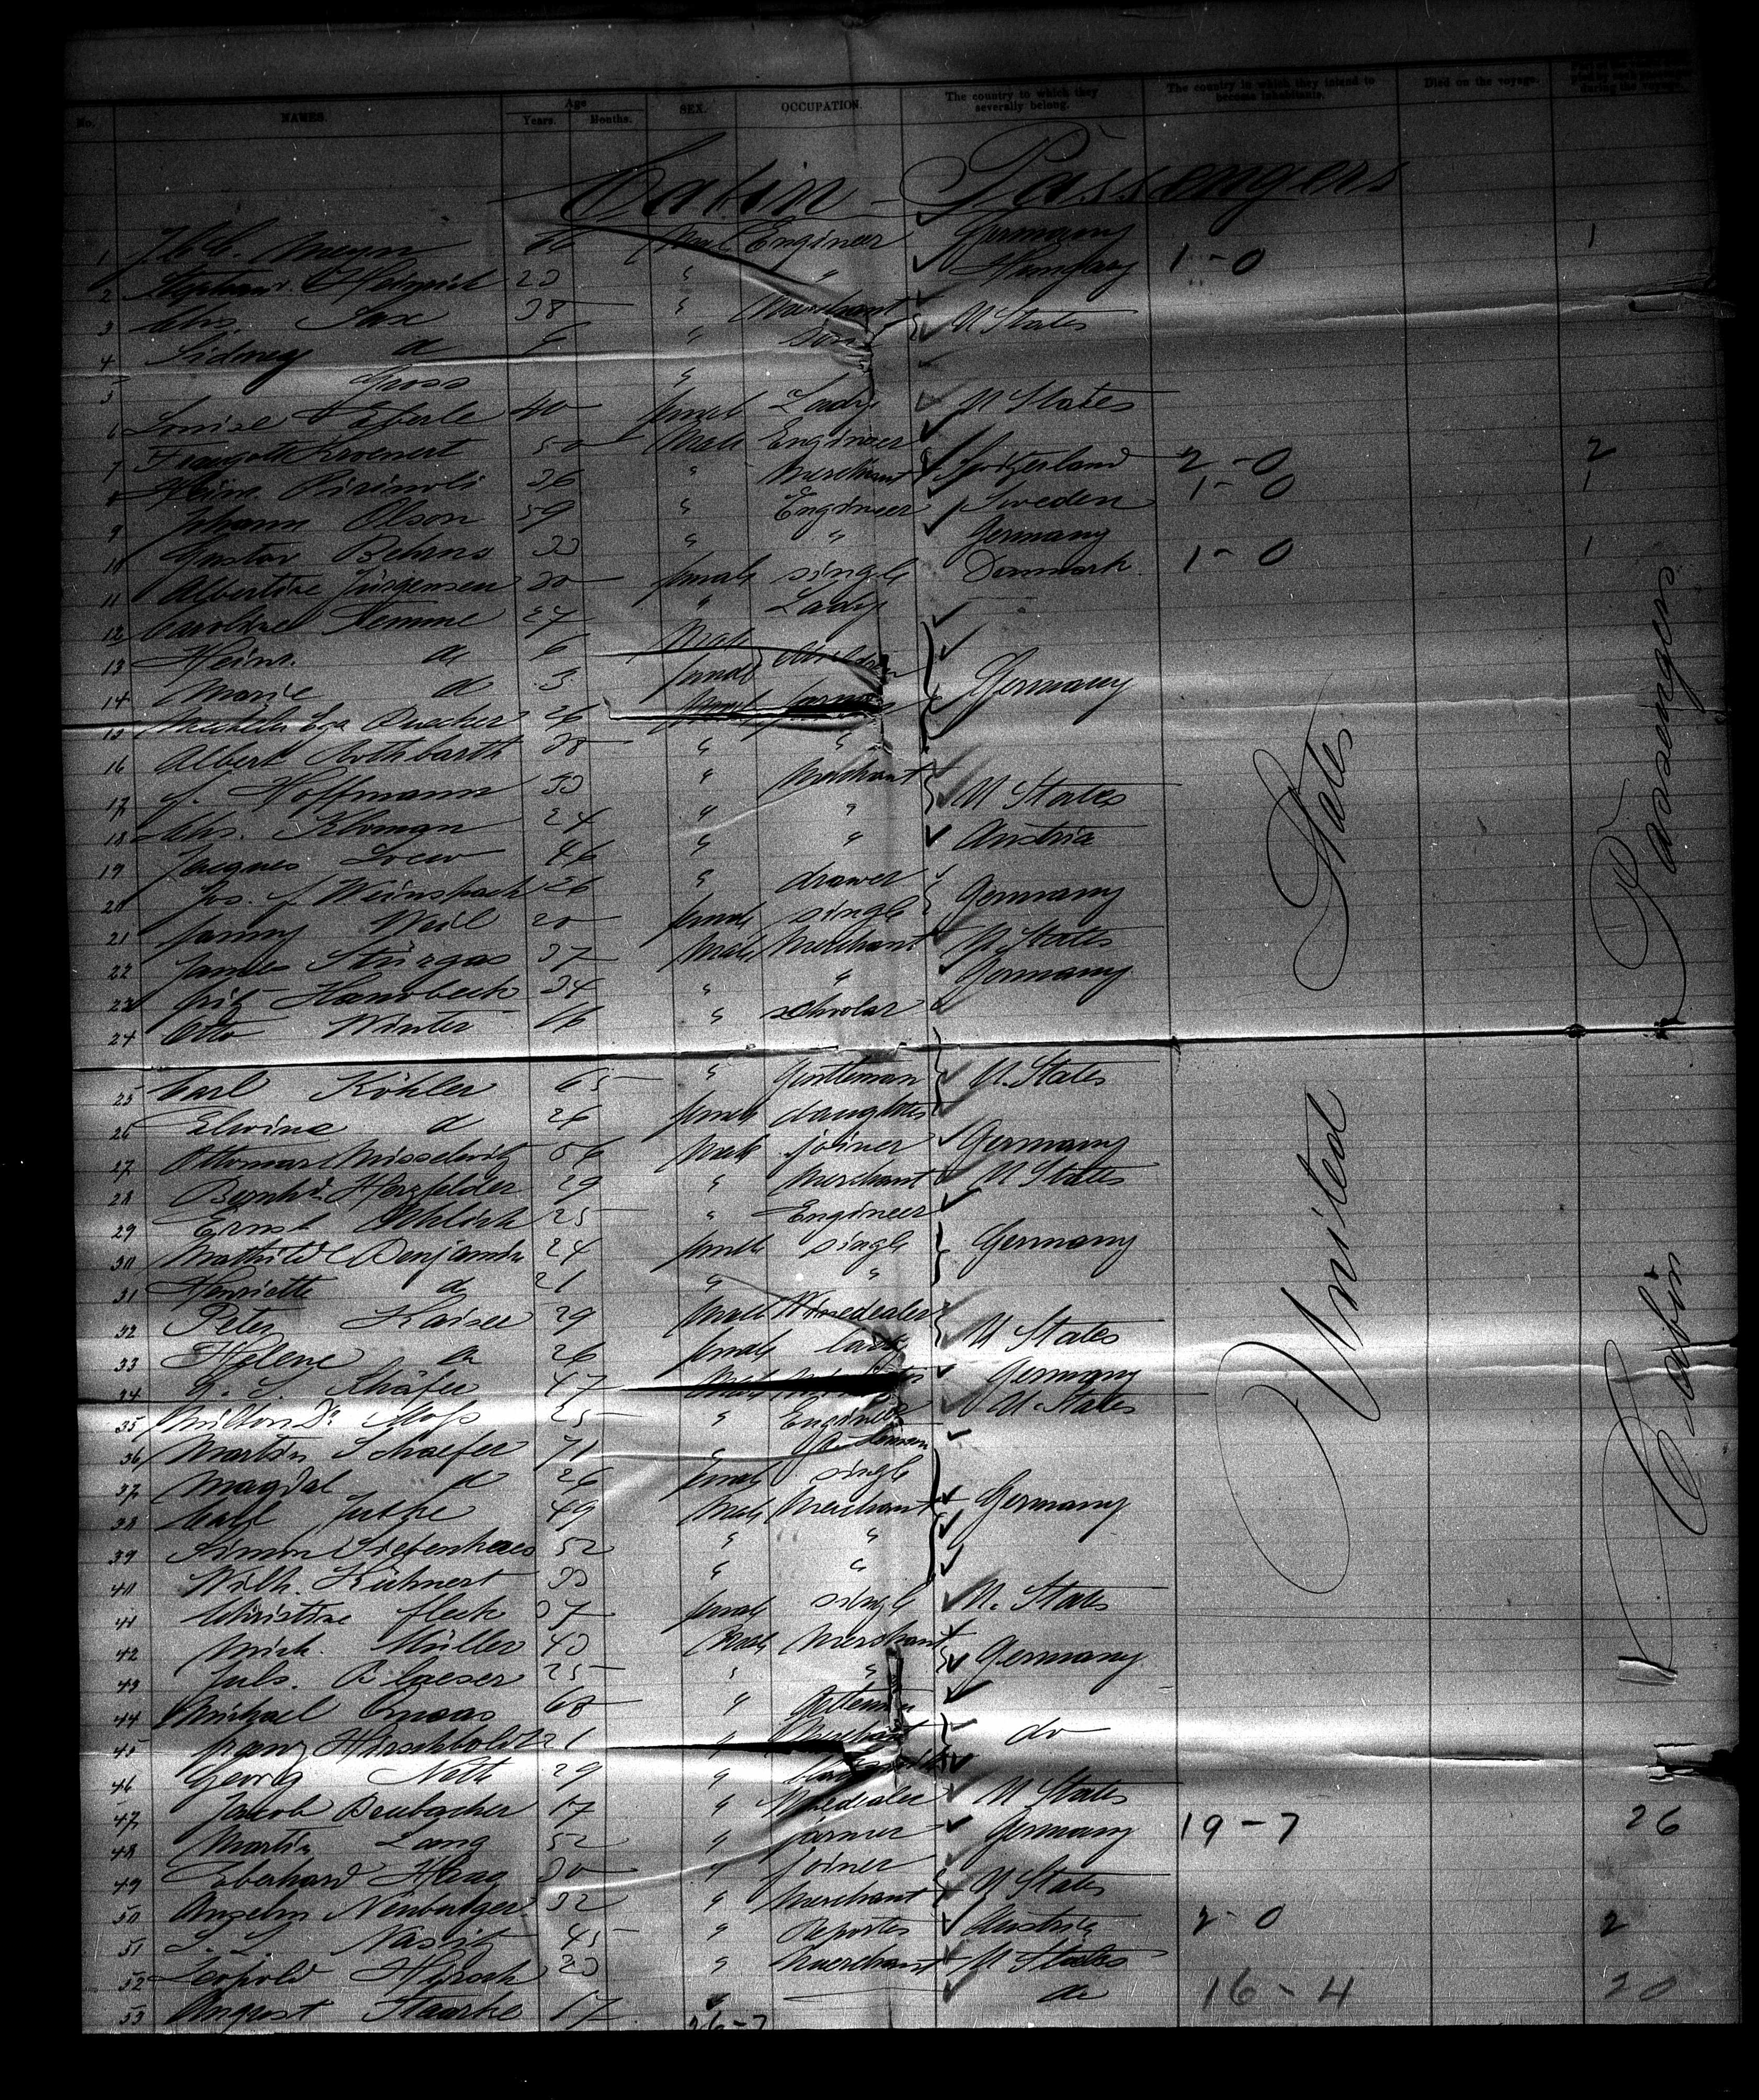 No. NAMES. Age Years. Months. SEX. OCCUPATION. The country to which they severally belong. The country in which they intend to become inhabitants. Died on the voyage. during the voyage.
Cabin Passengers
1 Meyn Engineer Germany 1
2 Heinrich 23 " " Hungary 1-0
3 Chs. Sax 38 " Merchant U States
4 Sidney d " Son
5 Gross "
6 Louise Eberle 40 female Lady U States
7 Kroenert 50 Male Engineer
8 Heinr. 36 " Merchant Switzerland 2-0 2
9 Johann Olson 59 " Engineer Sweden 1-0 1
10 Gustav Behrns 33 " " Germany
11 Albertine Jürgensen 30 female single Danmark 1-0 1
12 Caroline Temme 27 " Lady
13 Heinr. d 6 Male Children
14 Marie d 3 female Germany
15 26
16 Albert Rothbarth 38 " "
17 J. Hoffmann 33 " Merchant
18 Chs. Kloman 24 " " U States
19 Jacques Loew 46 " " Austria
20 Jos. J. Weinsbach 26 " drawer
21 Fanny Weil 20 female single Germany
22 James Sturgas 37 Male Merchant U States
23 Fritz Hansbeck 34 " " Germany
24 Otto Winter 16 " scholar
25 Carl Köhler 65 " Gentleman U. States
26 Elwine d 26 female daughter
27 Ottomar Misselwitz 56 Male joiner Germany
28 Bernhd. Herzfelder 29 " Merchant U States
29 Ernst 25 " Engineer
30 Mathilde Benjamin 24 female single Germany
31 Henriette d 21 " "
32 Peter Kaiser 29 Male Winedealer
33 Helene d 26 female lady U States
34 Schäfer 47 Male Germany
35 Milton Dr. 25 " Engineer U. States
36 Martin Schaefer 71 "
37 Magdal d 26 female single
38 Carl Jutke 49 Male Merchant Germany
39 Simon Siefenhaus 52 " "
40 Wilh. Kühnert 33 " "
41 Christine Fleck 37 female single U. States
42 Mich. Müller 43 Male Merchant
43 Juls. Blaeser 25 " " Germany
44 Michael 68 "
45 Franz Hirschboldt 21 " Merchant do
46 Georg Noth 29 "
47 Jacob Benbacher 17 " Winedealer U States
48 Martin Lang 52 " farmer Germany 19-7 26
49 Eberhard Haag 30 " joiner
50 Anselm Neuburger 32 " Merchant U States
51 45 " Reporter Austria 2-0 2
52 Leopold Hirsch 23 " Merchant U States
53 August Staarke 17 " do 16-4 20
26-7
United States
Cabin Passengers